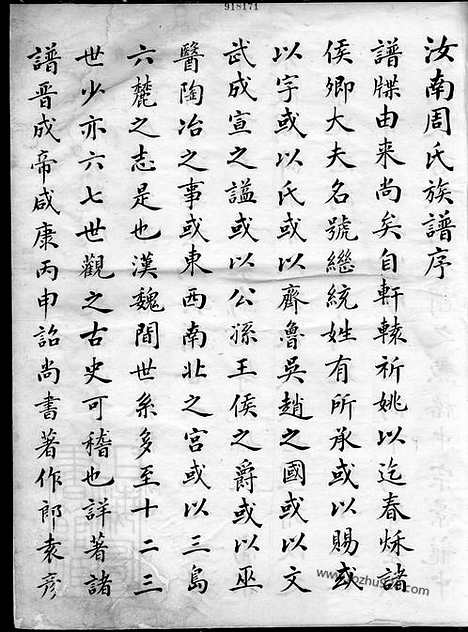 918171
汝南周氏族譜序
譜牒由来尚矣自軒轅祈姚以迄春秌諸
侯卿大夫名號繼統姓有所承或以賜或
以字或以氏或以齊魯吳趙之國或以文
武成宣之謚或以公孫王侯之爵或以巫
醫陶冶之事或東西南北之宫或以三島
六麓之志是也漢魏間世系多至十二三
世少亦六七世觀之古史可稽也詳著諸
譜晋成帝咸康丙申詔尚書著作郎袁彥